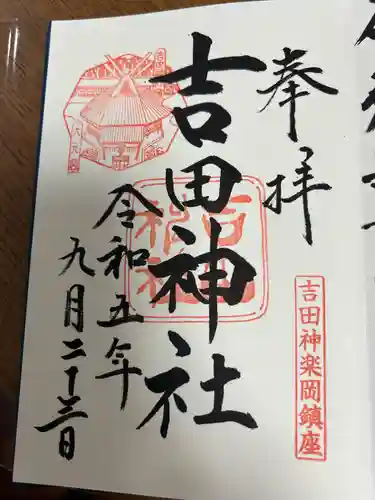 奉拝
吉田神楽岡鎮座
吉田神社
令和五年
九月二十三日
大元宮